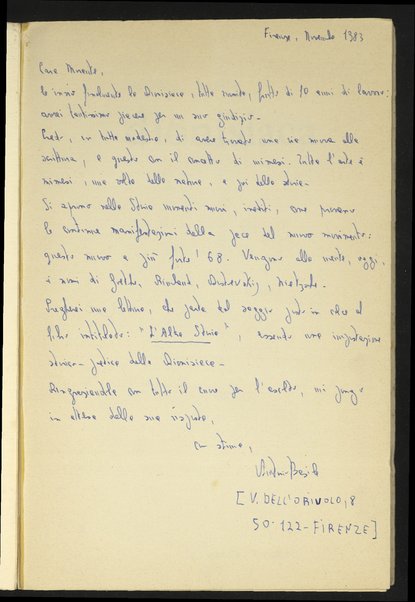 Firenze, Novembre 1983
Caro Minervio,
le invio finalmente la Dionisiaca, tutta quanta, frutto di 10 anni di lavoro:
avrei tantissimo piacere per un suo giudizio.
Credo, in tutta modestia, di avere trovato una via nuova alla
scrittura, e questo con il concetto di mimesi. Tutta l'arte è
mimesi, una volta della natura, e poi della storia.
Si aprono nella Storia momenti nuovi, inediti, come provano
le continue manifestazioni della pace del nuovo movimento:
questo nuovo è più forte! 68. Vengono alla mente, oggi,
i nomi di Goethe, Rimbaud, Dostoevskij, Nietzsche.
Pregherei una lettura, che parta dal saggio posto in calce al
libro intitolato: "L'Altra Storia", essendo una impostazione
storico-poetica della Dionisiaca.
Ringraziandola con tutto il cuore per l'ascolto, mi pongo
in attesa della sua risposta,
con stima,
[V. DELL'ORIVOLO, 8
50.122-FIRENZE]